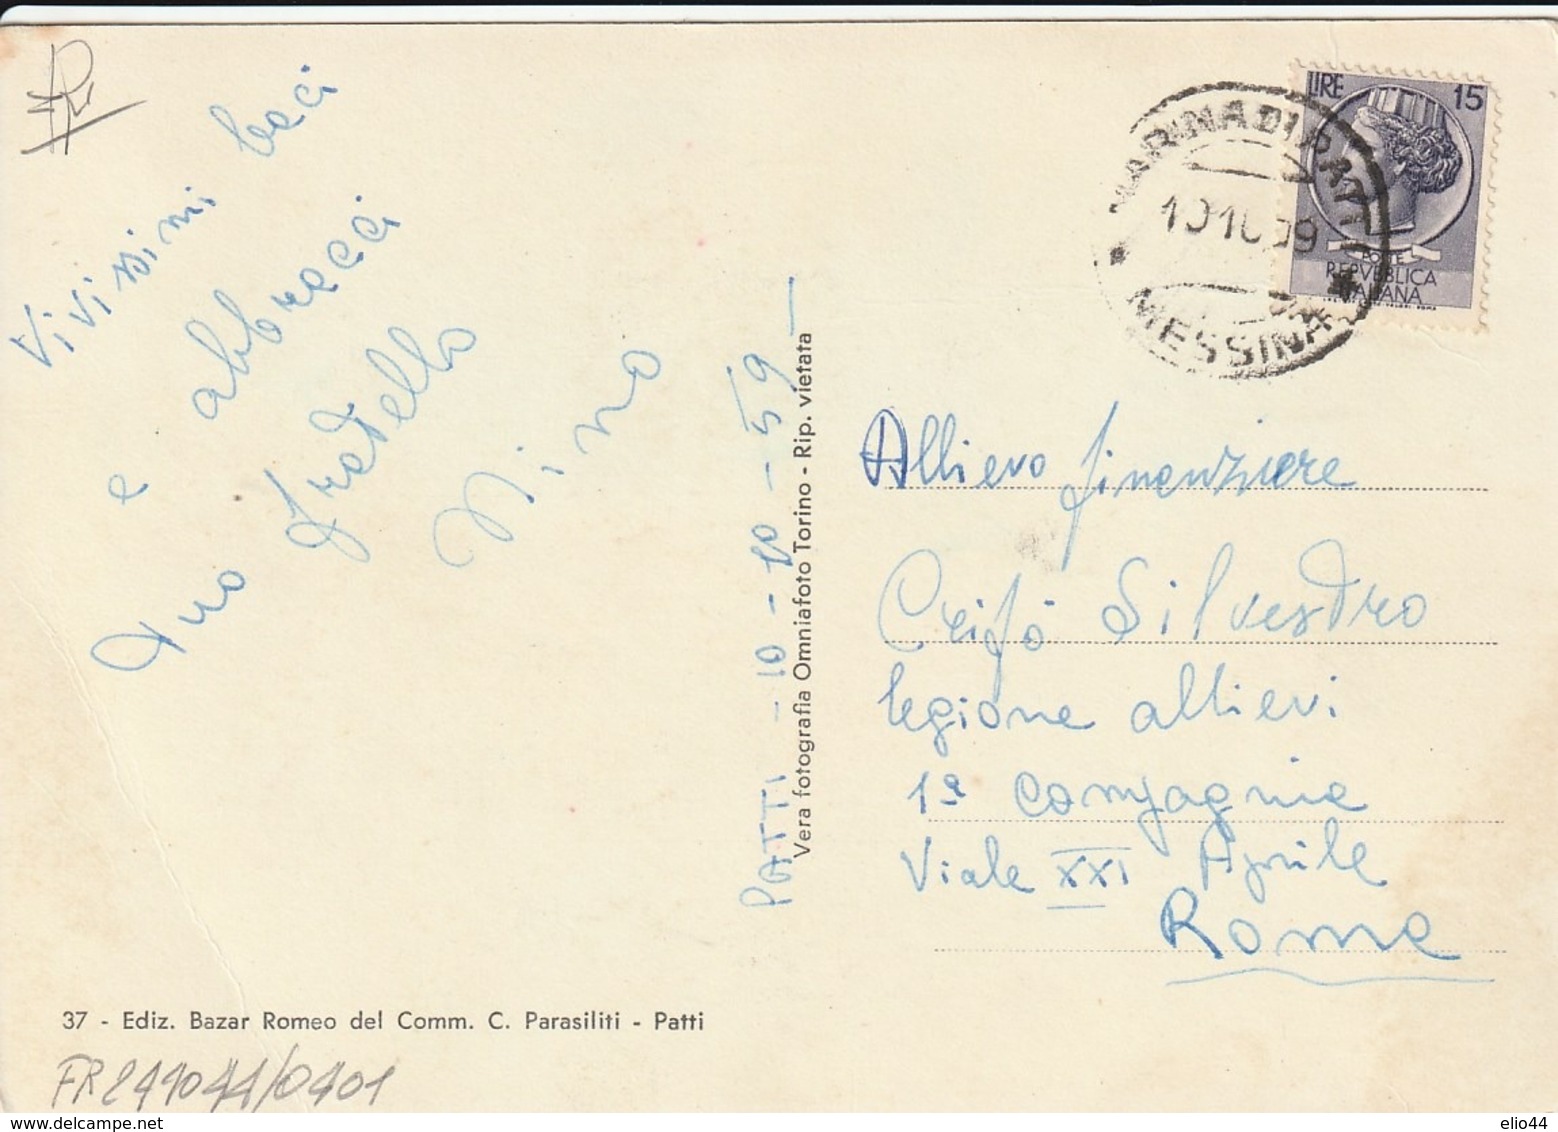 Vivissimi baci
e abbracci
tuo fratello
Nino
PATTI - 10 - 10 - 59
Vera fotografia Omniafoto Torino - Rip. vietata
LIRE 15
POSTE
REPVBBLICA
ITALIANA
MARINA DI PATTI
10 10 59
MESSINA
Allievo finanziere
Crifò Silvestro
legione allievi
1ª compagnia
Viale XXI Aprile
Roma
37 - Ediz. Bazar Romeo del Comm. C. Parasiliti - Patti
www.delcampe.net
elio44